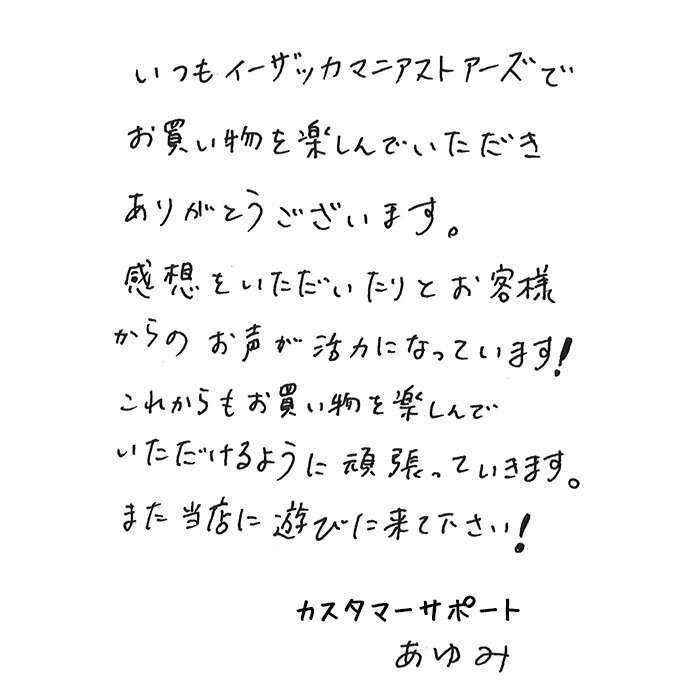 いつもイーザッカマニアストアーズで
お買い物を楽しんでいただき
ありがとうございます。
感想をいただいたりとお客様
からのお声が活力になっています!
これからもお買い物を楽しんで
いただけるように頑張っていきます。
また当店に遊びに来て下さい!
カスタマーサポート
あゆみ